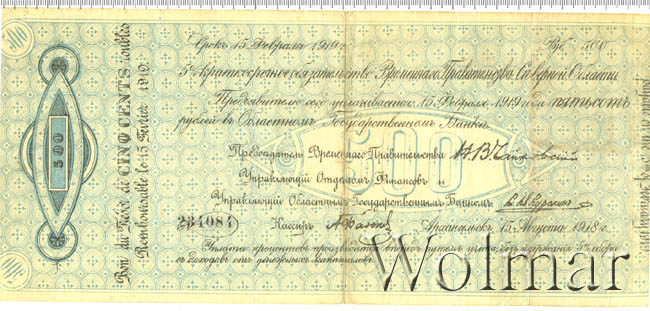 500
Срокъ 15 Февраля 1919 г.
Руб. 500
5% краткосрочное обязательство Временнаго Правительства Сѣверной Области
Предъявителю сего уплачивается 15 Февраля 1919 года пятьсотъ
рублей въ Областномъ Государственномъ Банкѣ
500
Предсѣдатель Временнаго Правительства
Управляющій Отдѣломъ Финансовъ и
Управляющій Областнымъ Государственнымъ Банкомъ
234084
Кассиръ
Архангельскъ 15 Августа 1918 г.
Уплата процентовъ производится впередъ путемъ учета, безъ удержанія сбора
съ доходовъ отъ денежныхъ капиталовъ.
Bon du Trésor de CINQ CENTS roubles
Remboursable le 15 Février 1919.
500
Wolmar